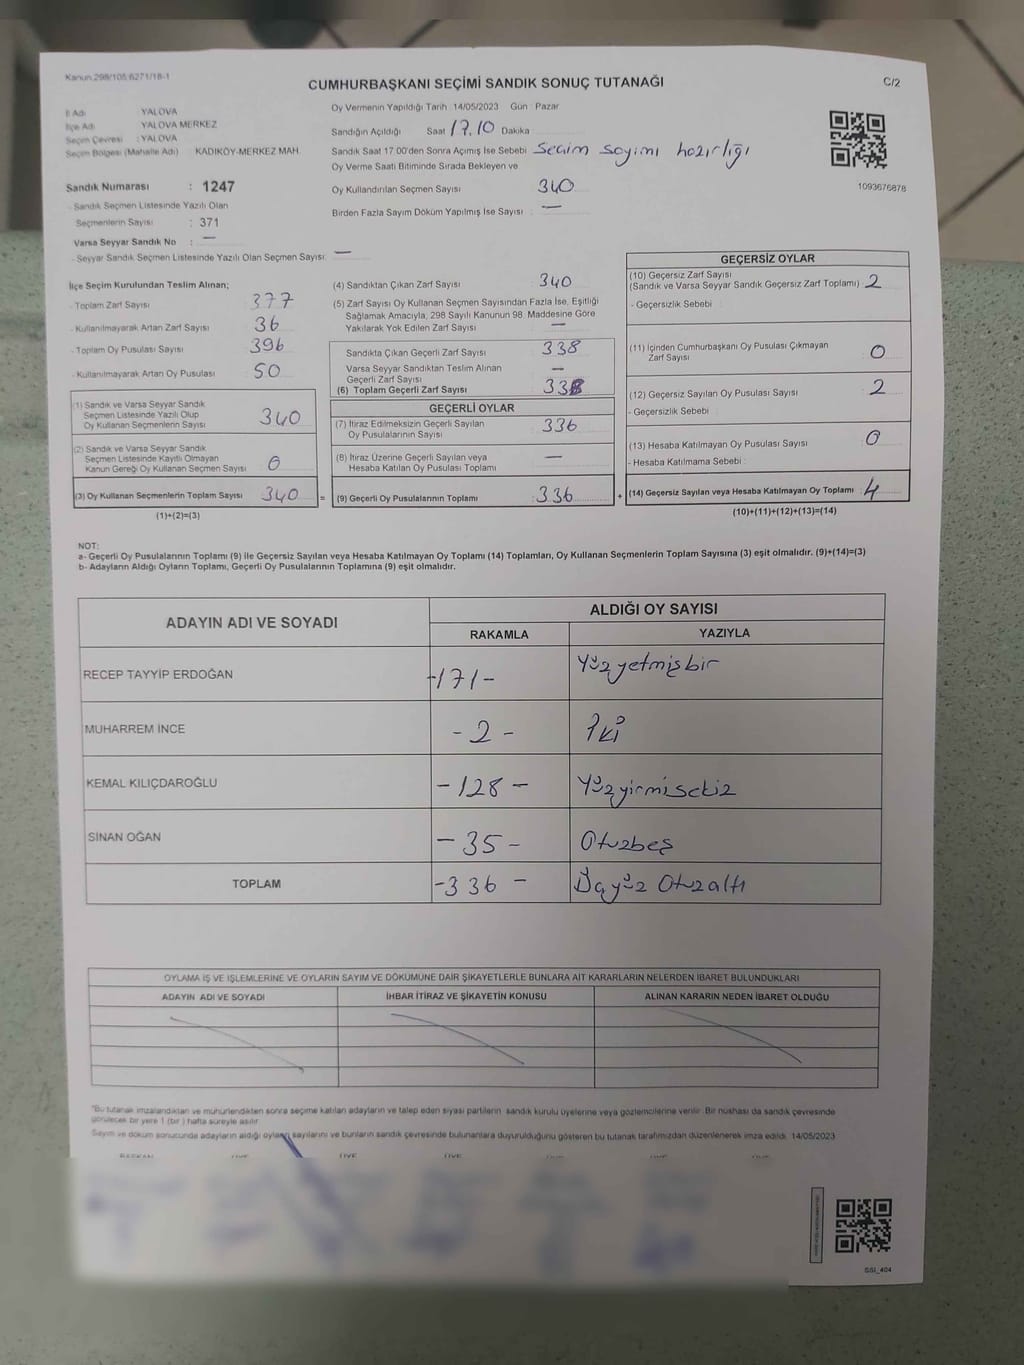 Kanun.298/105.6271/18-1
CUMHURBAŞKANI SEÇİMİ SANDIK SONUÇ TUTANAĞI
C/2
İl Adı YALOVA
İlçe Adı YALOVA MERKEZ
Seçim Çevresi : YALOVA
Seçim Bölgesi (Mahalle Adı) KADIKÖY-MERKEZ MAH.
Sandık Numarası : 1247
- Sandık Seçmen Listesinde Yazılı Olan
Seçmenlerin Sayısı : 371
Varsa Seyyar Sandık No : —
- Seyyar Sandık Seçmen Listesinde Yazılı Olan Seçmen Sayısı: —
Oy Vermenin Yapıldığı Tarih : 14/05/2023 Gün : Pazar
Sandığın Açıldığı Saat 17.10 Dakika
Sandık Saat 17:00'den Sonra Açımış İse Sebebi Secim sayimi hazırlığı
Oy Verme Saati Bitiminde Sırada Bekleyen ve
Oy Kullandırılan Seçmen Sayısı 340
Birden Fazla Sayım Döküm Yapılmış İse Sayısı : —
1093676878
İlçe Seçim Kurulundan Teslim Alınan;
- Toplam Zarf Sayısı 377
- Kullanılmayarak Artan Zarf Sayısı 36
- Toplam Oy Pusulası Sayısı 396
- Kullanılmayarak Artan Oy Pusulası 50
(1) Sandık ve Varsa Seyyar Sandık
Seçmen Listesinde Yazılı Olup
Oy Kullanan Seçmenlerin Sayısı 340
(2) Sandık ve Varsa Seyyar Sandık
Seçmen Listesinde Kayıtlı Olmayan
Kanun Gereği Oy Kullanan Seçmen Sayısı 0
(3) Oy Kullanan Seçmenlerin Toplam Sayısı 340 =
(1)+(2)=(3)
(4) Sandıktan Çıkan Zarf Sayısı 340
(5) Zarf Sayısı Oy Kullanan Seçmen Sayısından Fazla İse, Eşitliği
Sağlamak Amacıyla, 298 Sayılı Kanunun 98. Maddesine Göre
Yakılarak Yok Edilen Zarf Sayısı —
Sandıkta Çıkan Geçerli Zarf Sayısı 338
Varsa Seyyar Sandıktan Teslim Alınan
Geçerli Zarf Sayısı —
(6) Toplam Geçerli Zarf Sayısı 338
GEÇERLİ OYLAR
(7) İtiraz Edilmeksizin Geçerli Sayılan
Oy Pusulalarının Sayısı 336
(8) İtiraz Üzerine Geçerli Sayılan veya
Hesaba Katılan Oy Pusulası Toplamı —
(9) Geçerli Oy Pusulalarının Toplamı : 336 +
GEÇERSİZ OYLAR
(10) Geçersiz Zarf Sayısı
(Sandık ve Varsa Seyyar Sandık Geçersiz Zarf Toplamı) 2
- Geçersizlik Sebebi :
(11) İçinden Cumhurbaşkanı Oy Pusulası Çıkmayan
Zarf Sayısı 0
(12) Geçersiz Sayılan Oy Pusulası Sayısı 2
- Geçersizlik Sebebi :
(13) Hesaba Katılmayan Oy Pusulası Sayısı 0
- Hesaba Katılmama Sebebi :
(14) Geçersiz Sayılan veya Hesaba Katılmayan Oy Toplamı : 4
(10)+(11)+(12)+(13)=(14)
NOT:
a- Geçerli Oy Pusulalarının Toplamı (9) ile Geçersiz Sayılan veya Hesaba Katılmayan Oy Toplamı (14) Toplamları, Oy Kullanan Seçmenlerin Toplam Sayısına (3) eşit olmalıdır. (9)+(14)=(3)
b- Adayların Aldığı Oyların Toplamı, Geçerli Oy Pusulalarının Toplamına (9) eşit olmalıdır.
ADAYIN ADI VE SOYADI ALDIĞI OY SAYISI
RAKAMLA YAZIYLA
RECEP TAYYİP ERDOĞAN -171- Yüzyetmişbir
MUHARREM İNCE -2- İki
KEMAL KILIÇDAROĞLU -128- Yüzyirmisekiz
SİNAN OĞAN -35- Otuzbeş
TOPLAM -336- Üçyüz Otuzaltı
OYLAMA İŞ VE İŞLEMLERİNE VE OYLARIN SAYIM VE DÖKÜMÜNE DAİR ŞİKAYETLERLE BUNLARA AİT KARARLARIN NELERDEN İBARET BULUNDUKLARI
ADAYIN ADI VE SOYADI İHBAR İTİRAZ VE ŞİKAYETİN KONUSU ALINAN KARARIN NEDEN İBARET OLDUĞU
*Bu tutanak imzalandıktan ve mühürlendikten sonra seçime katılan adayların ve talep eden siyasi partilerin sandık kurulu üyelerine veya gözlemcilerine verilir. Bir nüshası da sandık çevresinde
görülecek bir yere 1 (bir) hafta süreyle asılır
Sayım ve döküm sonucunda adayların aldığı oyların sayılarını ve bunların sandık çevresinde bulunanlara duyurulduğunu gösteren bu tutanak tarafımızdan düzenlenerek imza edildi. 14/05/2023
BAŞKAN ÜYE ÜYE ÜYE ÜYE ÜYE ÜYE
SSI_404